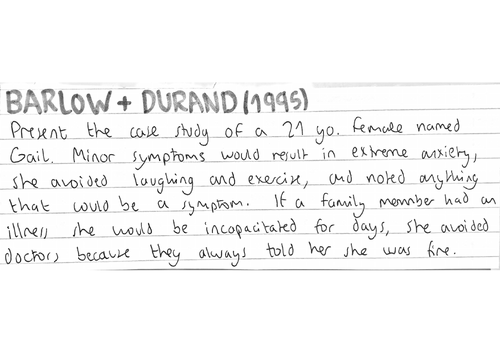 BARLOW + DURAND (1995)
Present the case study of a 21 yo. female named
Gail. Minor symptoms would result in extreme anxiety,
she avoided laughing and exercise, and noted anything
that could be a symptom. If a family member had an
illness she would be incapacitated for days, she avoided
doctors because they always told her she was fine.